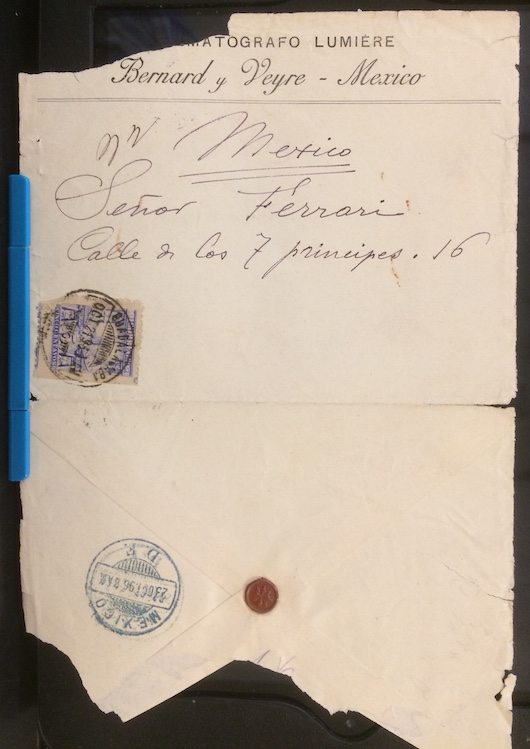 MATOGRAFO LUMIÈRE
Bernard y Veyre - Mexico
Mexico
Señor Ferrari
Calle de los 7 principes. 16
GUADALAJARA
OCT 21 96
MEXICO
23 OCT 96
D. F.